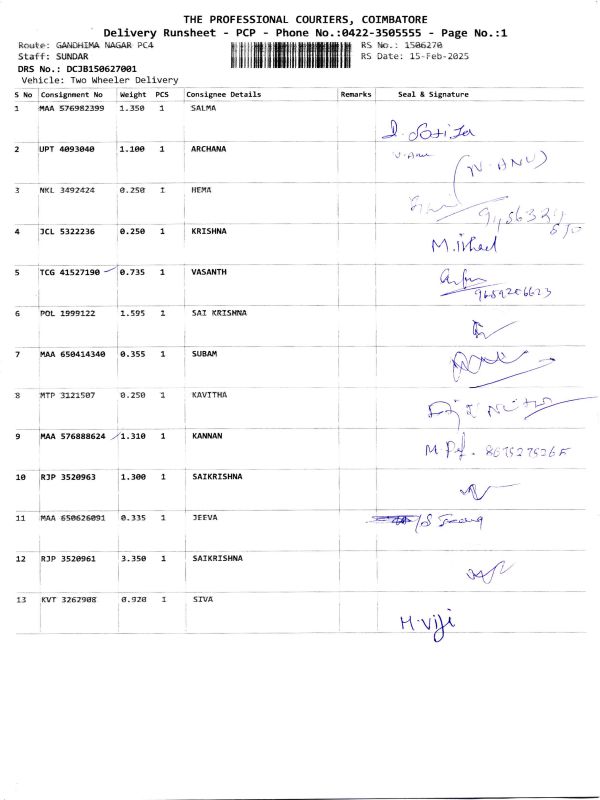 THE PROFESSIONAL COURIERS, COIMBATORE
Delivery Runsheet - PCP - Phone No.:0422-3505555 - Page No.:1
Route: GANDHIMA NAGAR PC4 RS No.: 1506270
Staff: SUNDAR RS Date: 15-Feb-2025
DRS No.: DCJB150627001
Vehicle: Two Wheeler Delivery
S No Consignment No Weight PCS Consignee Details Remarks Seal & Signature
1 MAA 576982399 1.350 1 SALMA
2 UPT 4093040 1.100 1 ARCHANA V. Anu (N. ANU)
3 NKL 3492424 0.250 1 HEMA
4 JCL 5322236 0.250 1 KRISHNA
5 TCG 41527190 0.735 1 VASANTH
9689206623
6 POL 1999122 1.595 1 SAI KRISHNA
7 MAA 650414340 0.355 1 SUBAM
8 MTP 3121507 0.250 1 KAVITHA
9 MAA 576888624 1.310 1 KANNAN
10 RJP 3520963 1.300 1 SAIKRISHNA
11 MAA 650626091 0.335 1 JEEVA
12 RJP 3520961 3.350 1 SAIKRISHNA
13 KVT 3262908 0.920 1 SIVA
M. Viji